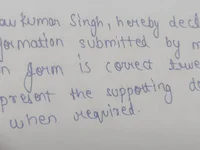 Kumar Singh, hereby decl
formation submitted by m
n form is correct true
present the supporting d
when required.